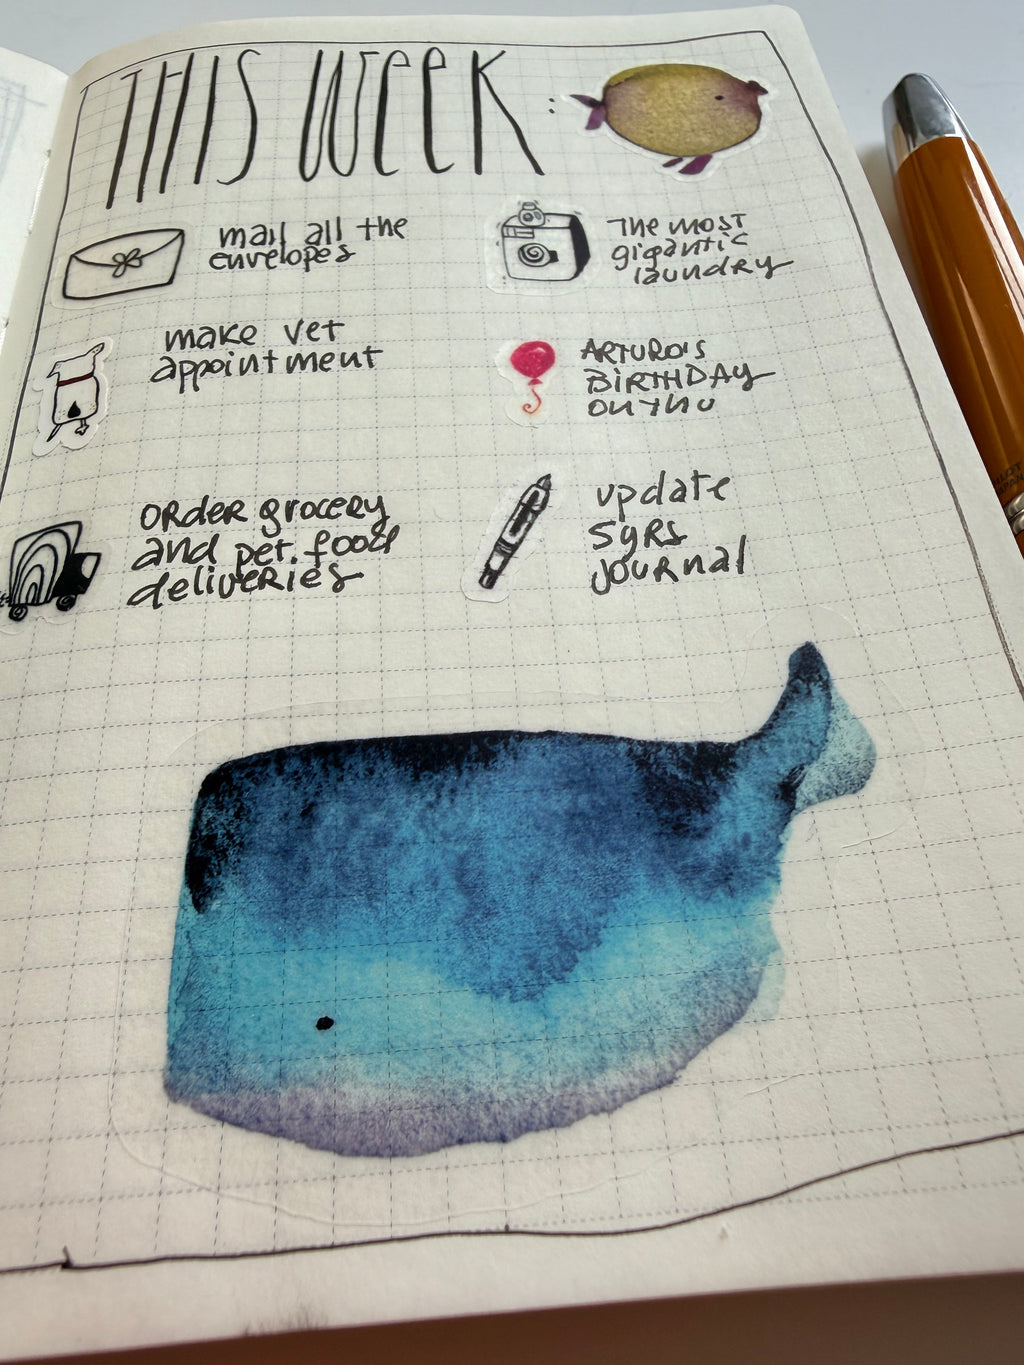 THIS WEEK:
mail all the
envelopes
The most
gigantic
laundry
make vet
appointment
ARTURO'S
BIRTHDAY
ON THU
order grocery
and pet food
deliveries
update
5yrs
journal